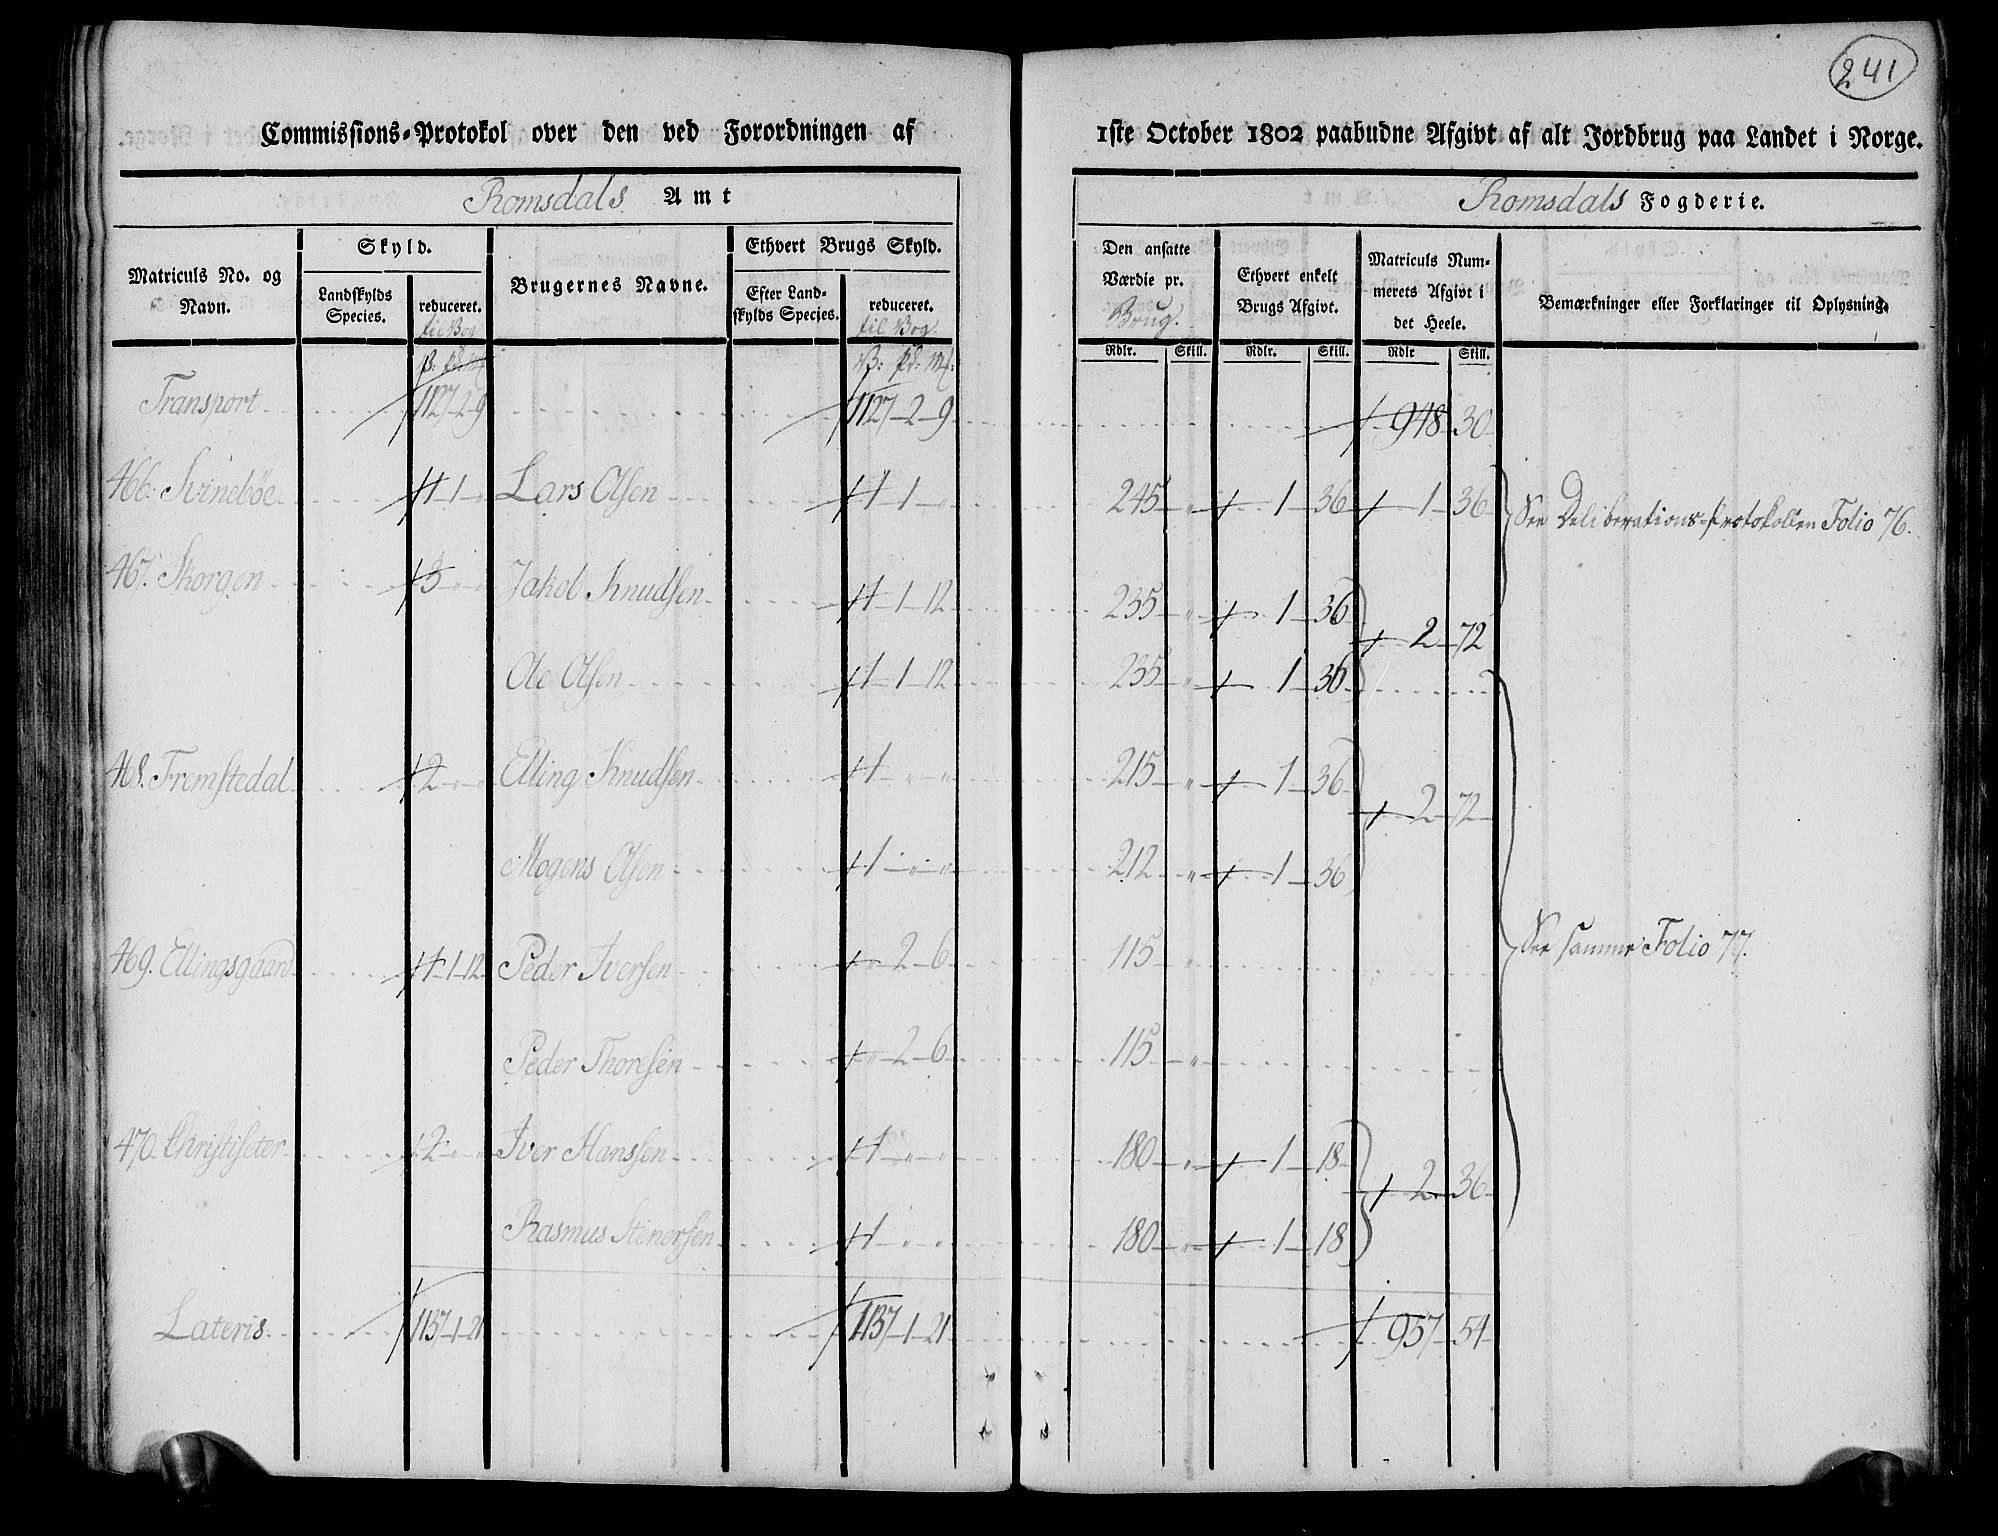 241
Commissions-Protokol over den ved Forordningen af 1ste October 1802 paabudne Afgivt af alt Jordbrug paa Landet i Norge.
Romsdals Amt
Romsdals Fogderie.
Matriculs No. og Navn.
Skyld.
Landskylds Species.
reduceret.
til Vog
Brugernes Navne.
Ethvert Brugs Skyld.
Efter Landskylds Species.
reduceret.
til Vog
Den ansatte Værdie pr. Brug.
Ethvert enkelt Brugs Afgivt.
Matriculs Nummerets Afgivt i det Heele.
Bemærkninger eller Forklaringer til Oplysning.
Rdlr. Skill. Rdlr. Skill. Rdlr Skill.
V: Pd: M:
Transport 1127 2 9 1127 2 9 948 30
466. Svinebøe 1 1 " Lars Olsen 1 1 " 245 " 1 36 1 36 See Deliberations-Protokollen Folio 76.
467. Skorgen 3 " " Jakob Knudsen 1 1 12 235 " 1 36
2 72
Ole Olsen 1 1 12 235 " 1 36
468. Fremstedal 2 " " Elling Knudsen 1 " " 215 " 1 36
2 72
Mogens Olsen 1 " " 212 " 1 36
469. Ellingsgaard 1 1 12 Peder Iversen " 2 6 115 " See samme Folio 77.
Peder Thoresen " 2 6 115 "
470. Christiseter 2 " " Iver Hanssen 1 " " 180 " 1 18
2 36
Rasmus Stenersen 1 " " 180 " 1 18
Lateris 1137 1 21 1137 1 21 957 54